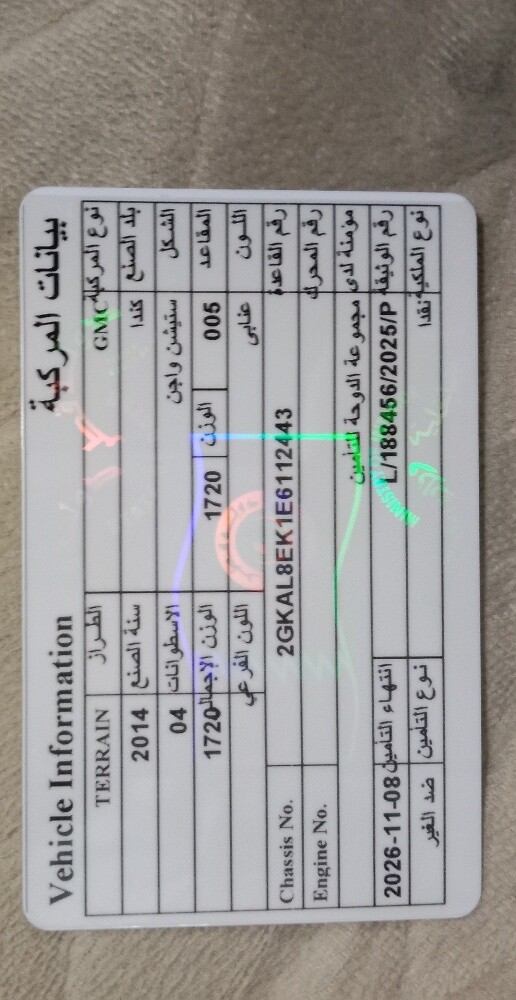 Vehicle Information بيانات المركبة
نوع المركبة GMC الطراز TERRAIN
بلد الصنع كندا سنة الصنع 2014
الشكل ستيشن واجن الاسطوانات 04
المقاعد 005 الوزن 1720 الوزن الإجمالي 1720
اللون عنابي اللون الفرعي
رقم القاعدة 2GKAL8EK1E6112443 Chassis No.
رقم المحرك Engine No.
مؤمنة لدى مجموعة الدوحة للتأمين
رقم الوثيقة L/188456/2025/P انتهاء التأمين 2026-11-08
نوع الملكية نقدا نوع التأمين ضد الغير